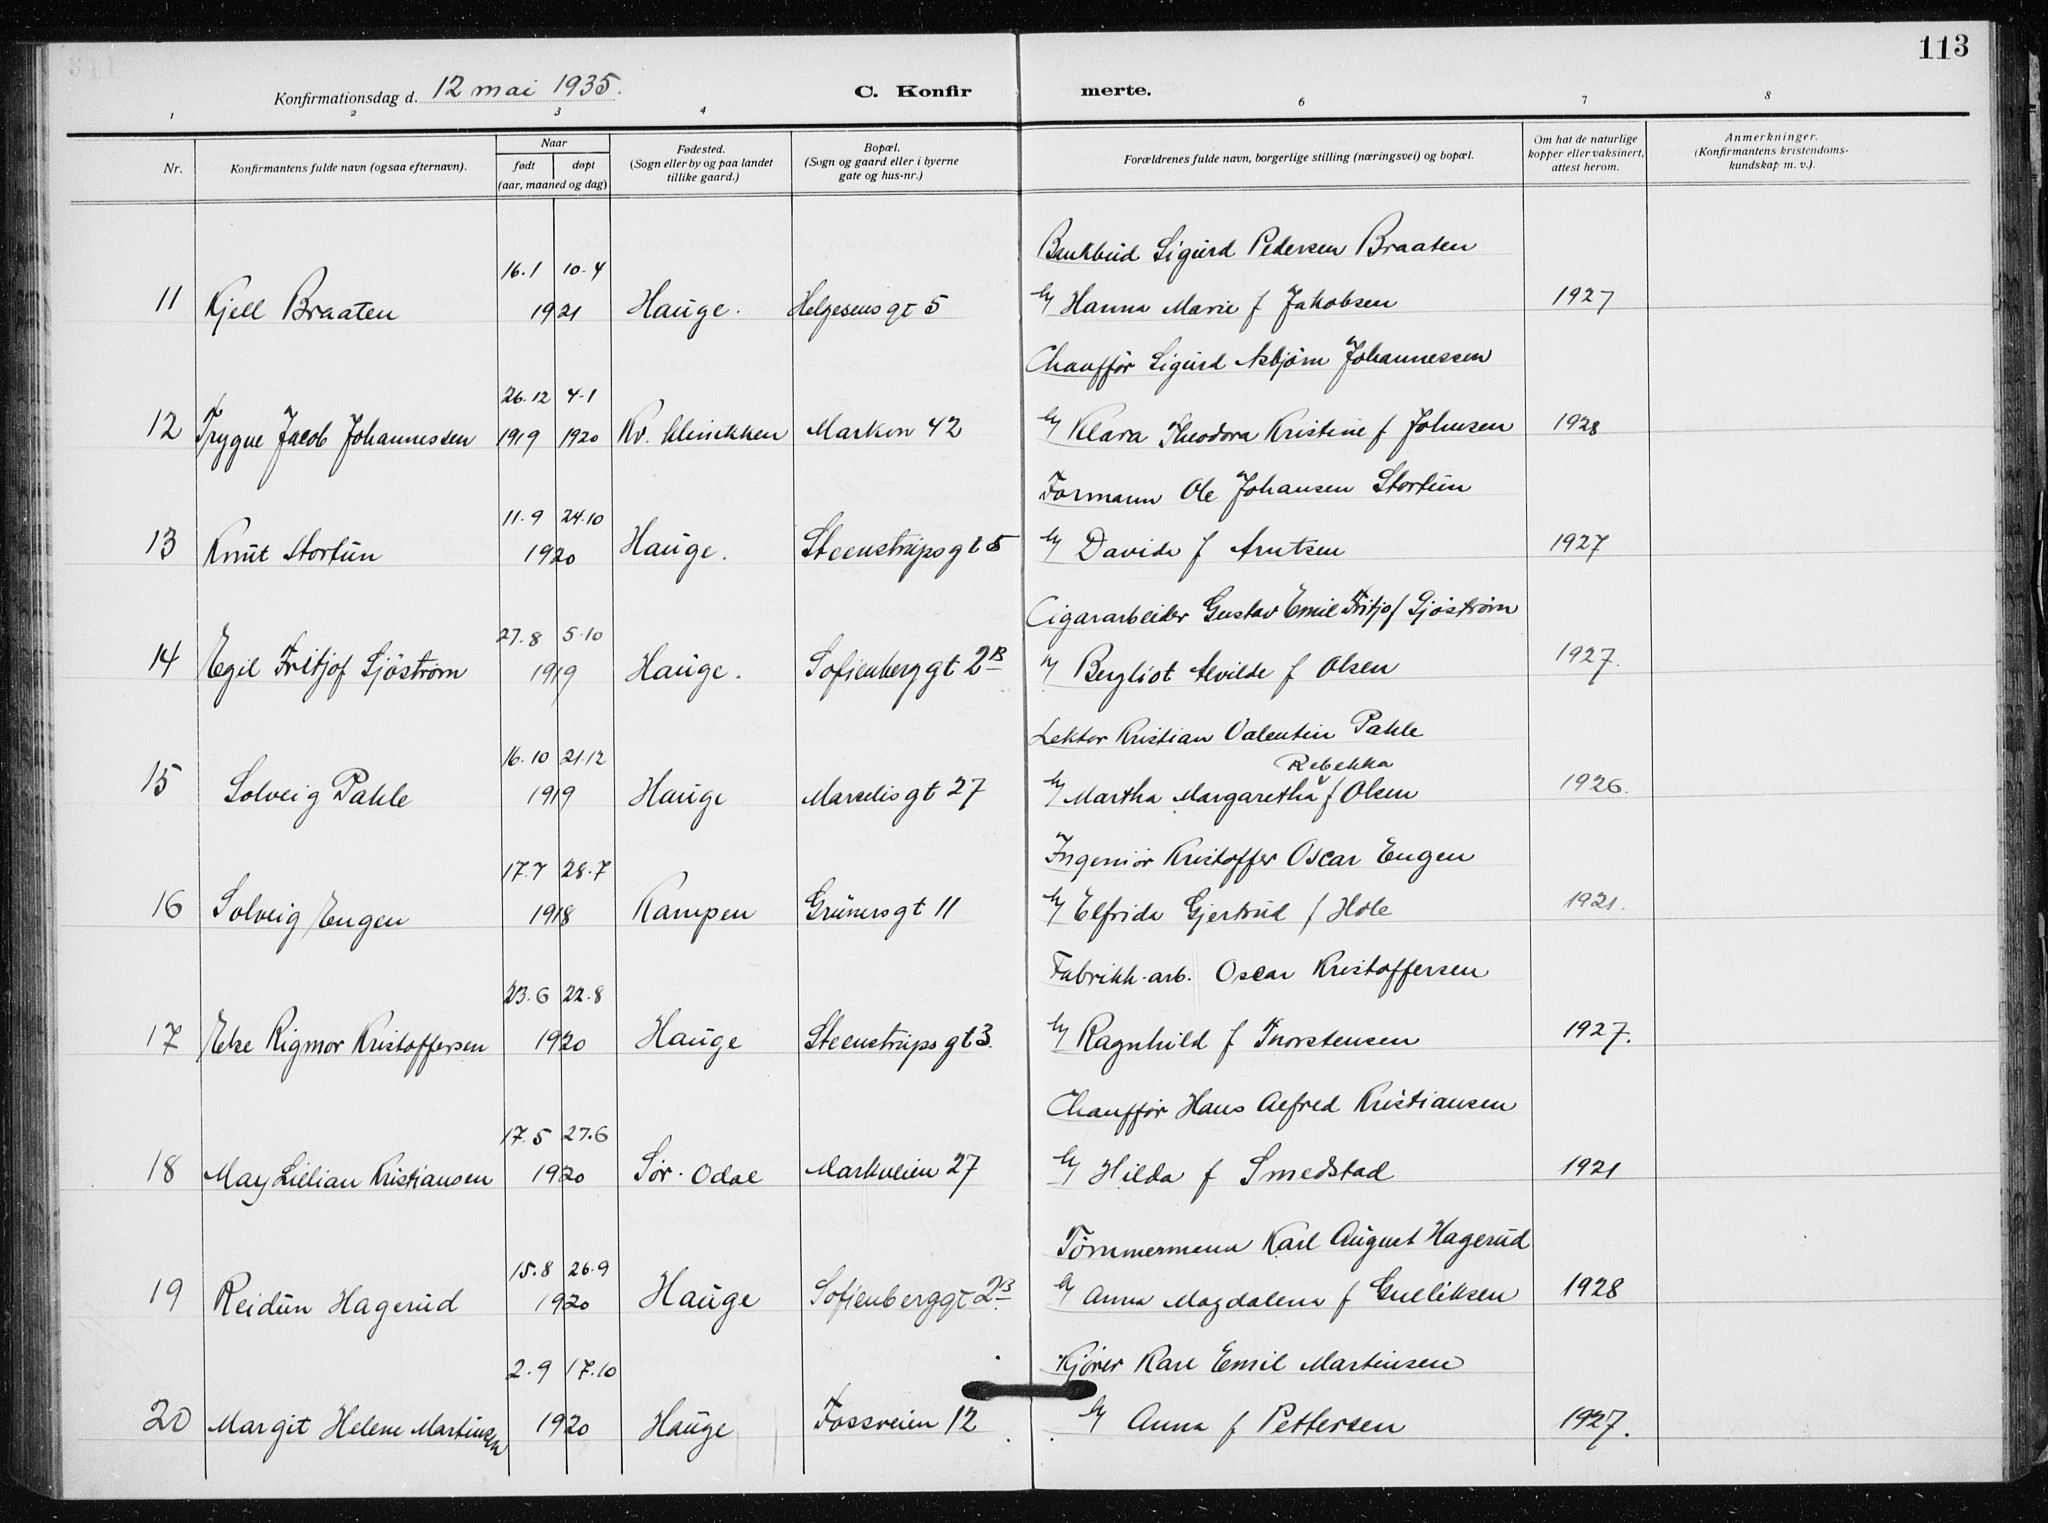 113
Konfirmationsdag d. 12 mai 1935.
C. Konfirmerte.
1 2 3 4 5 6 7 8
Nr.
Konfirmantens fulde navn (ogsaa efternavn).
Naar
født døpt
(aar, maaned og dag)
Fødested.
(Sogn eller by og paa landet
tillike gaard.)
Bopæl.
(Sogn og gaard eller i byerne
gate og hus-nr.)
Forældrenes fulde navn, borgerlige stilling (næringsvei) og bopæl.
Om hat de naturlige
kopper eller vaksinert,
attest herom.
Anmerkninger.
(Konfirmantens kristendoms-
kundskap m. v.).
16.1 10.4 Bankbud Sigurd Pedersen Braaten
11 Kjell Braaten 1921 Hauge. Helgesens gt 5 Hanna Marie f Jakobsen 1927
26.12 4.1 Chauffør Sigurd Asbjørn Johannessen
12 Trygve Jacob Johannessen 1919 1920 Kv. klinikken Markvn 42 Klara Theodora Kristine f Johnsen 1928
11.9 24.10 Formann Ole Johansen Stortun
13 Knut Stortun 1920 Hauge. Steenstrups gt 5 Davida f Arntsen 1927
27.8 5.10 Cigararbeider Gustav Emil Fritjof Sjöström
14 Egil Fritjof Sjöström 1919 Hauge. Sofienberg gt 2B Bergliot Alvilde f Olsen 1927.
16.10 21.12 Lektor Kristian Valentin Pahle
Rebekka
15 Solveig Pahle 1919 Hauge Marselis gt 27 Martha Margaretha f Olsen 1926.
17.7 28.7 Ingeniør Kristoffer Oscar Engen
16 Solveig Engen 1918 Kampen Grüners gt 11 Elfrida Gjertrud f Hole 1921.
23.6 22.8 Fabrikk-arb. Oscar Kristoffersen
17 Else Rigmor Kristoffersen 1920 Hauge Steenstrups gt 3. Ragnhild f Thorstensen 1927.
17.5 27.6 Chauffør Hans Alfred Kristiansen
18 May Lillian Kristiansen 1920 Sør-Odal Markveien 27 Hilda f Smedstad 1921
15.8 26.9 Tømmermann Karl August Hagerud
19 Reidun Hagerud 1920 Hauge Sofienberggt 2B Anna Magdalena f Gulliksen 1928
2.9 17.10 Kjører Karl Emil Martinsen
20 Margit Helene Martinsen 1920 Hauge Fossveien 12 Anna f Pettersen 1927.